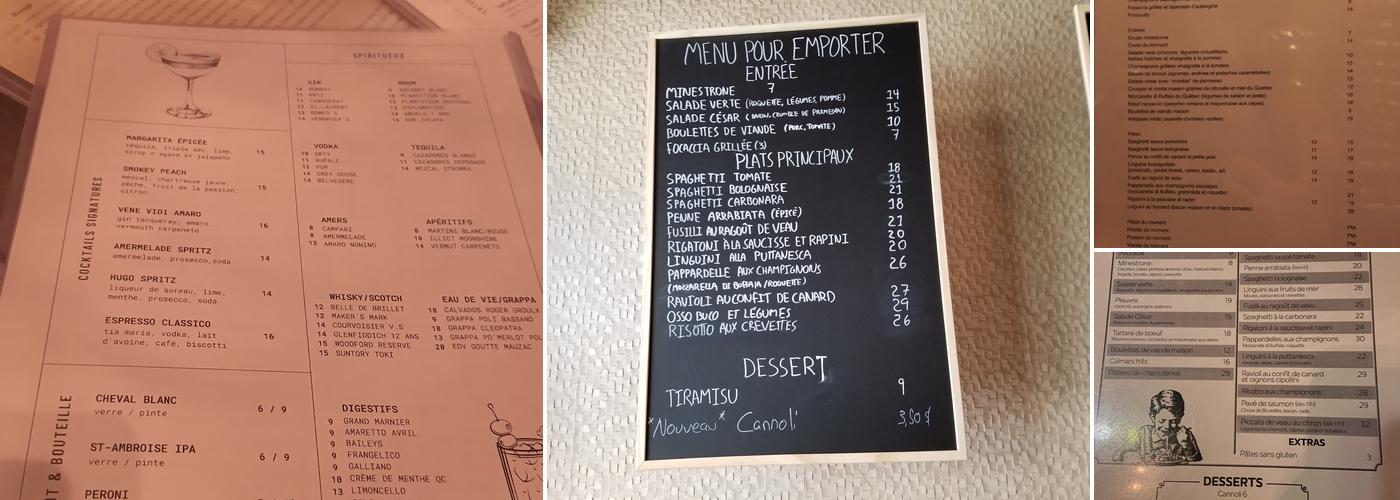 SPIRITUEUX
COCKTAILS SIGNATURES
MARGARITA ÉPICÉE
téquila, triple sec, lime, 15
sirop d'agave et jalapeño
SMOKEY PEACH
mezcal, chartreuse jaune,
pêche, fruit de la passion, 15
citron
VENE VIDI AMARO
gin tanqueray, amaro, 16
vermouth carpeneto
AMERMELADE SPRITZ
amermelade, prosecco, soda 14
HUGO SPRITZ
liqueur de sureau, lime, 14
menthe, prosecco, soda
ESPRESSO CLASSICO
tia maria, vodka, lait 16
d'avoine, café, biscotti
CHEVAL BLANC
verre / pinte 6 / 9
ST-AMBROISE IPA
verre / pinte 6 / 9
PERONI
& BOUTEILLE
GIN
10 BOMBAY
11 TANQUERAY
12 ST-LAURENT
13 ROMEO'S
14 HENDRICK'S
RHUM
9 BACARDI BLANC
10 PLANTATION BLANC
12 PLANTATION ORIGINAL
VODKA
10 SKYY
11 AUPALE
12 PUR
14 GREY GOOSE
14 BELVEDERE
TEQUILA
9 CAZADORES BLANCO
11 CAZADORES REPOSADO
14 MEZCAL STROMBA
AMERS
8 CAMPARI
8 AMERMELADE
13 AMARO NONINO
APÉRITIFS
8 MARTINI BLANC/ROUGE
10 ILLICT MOONSHINE
14 VERMUT CARPENETO
WHISKY/SCOTCH
12 BELLE DE BRILLET
12 MAKER'S MARK
14 COURVOISIER V.S
14 GLENFIDDICH 12 ANS
15 WOODFORD RESERVE
15 SUNTORY TOKI
EAU DE VIE/GRAPPA
18 CALVADOS ROGER GROULX
9 GRAPPA POLI BASSANO
18 GRAPPA CLEOPATRA
13 GRAPPA PO'MERLOT POL
20 EDV GOUTTE MAUZAC
DIGESTIFS
9 GRAND MARNIER
9 AMARETTO AVRIL
9 BAILEYS
9 FRANGELICO
9 GALLIANO
10 CRÈME DE MENTHE QC
13 LIMONCELLO
MENU POUR EMPORTER
ENTRÉE
MINESTRONE 7
SALADE VERTE (ROQUETTE, LÉGUMES, POMME) 14
SALADE CÉSAR (BACON, CRUMBLE DE PARMESAN) 15
BOULETTES DE VIANDE (PORC, TOMATE) 10
FOCACCIA GRILLÉE (3) 7
PLATS PRINCIPAUX
SPAGHETTI TOMATE 18
SPAGHETTI BOLOGNAISE 21
SPAGHETTI CARBONARA 21
PENNE ARRABIATA (ÉPICÉ) 18
FUSILLI AU RAGOÛT DE VEAU 21
RIGATONI À LA SAUCISSE ET RAPINI 20
LINGUINI ALLA PUTTANESCA 20
PAPPARDELLE AUX CHAMPIGNONS 26
(MOZZARELLA DI BUFFALA/ROQUETTE)
RAVIOLI AU CONFIT DE CANARD 27
OSSO BUCO ET LÉGUMES 29
RISOTTO AUX CREVETTES 26
DESSERT
TIRAMISU 9
*Nouveau* Cannoli 3,50 $
Focaccia grillée et tapenade d'aubergine
Prosciutto 14
Entrées
Soupe minestrone 7
Crudo du moment 14
Salade verte (chicorée, légumes croustillants,
herbes fraîches et vinaigrette à la pomme)
Champignons grillés vinaigrette à la tomates
Salade de fenouil (agrumes, endives et pistaches caramélisées)
Salade césar au "crumble" de parmesan
Courges et ricotta maison graines de citrouille et miel du Québec
Mozzarella di Buffala du Québec (légumes de saison et pesto)
Bœuf carpaccio (pecorino romano et mayonnaise aux câpres)
Boulettes de viande maison
Antipasto misto (assiette d'entrées variées)
Pâtes
Spaghetti sauce pomodoro 10 15
Spaghetti sauce bolognaise 11 17
Penne au confit de canard et petits pois 14 19
Linguine buosgustaio
(prosciutto, poulet braisé, raisins, basilic, ail) 12 18
Fusilli au ragoût de veau 14 19
Pappardelle aux champignons sauvages
(mozzarella di Buffala, gremolata et roquette) 21
Rigatoni à la saucisse et rapini 12 19
Linguini au homard (bacon maison et vin blanc tomates) 28
Pâtes du moment PM
Risotto du moment PM
Poisson du moment PM
Viande du moment
Minestrone 8
Salade verte 14
Pieuvre 19
Haricots, aubergine, poivrons
Salade César 15
Tartare de boeuf 18
Boulettes de viande maison 12
Calmars frits 16
Plateau de charcuteries 29
Spaghetti sauce tomate 19
Penne arrabiata (épicé) 20
Spaghetti bolognaise 22
Linguini aux fruits de mer 28
Moules, palourdes et crevettes
Fusilli au ragoût de veau 25
Spaghetti à la carbonara 22
Rigatoni à la saucisse et rapini 24
Pappardelles aux champignons 30
Mozzarella di Buffala, roquette
Linguini à la puttanesca 22
Ravioli au confit de canard 29
et oignons cipollini
Risotto aux champignons 28
Pavé de saumon (dès 17h) 29
Choux de Bruxelles, bacon, radis
Piccata de veau au citron (dès 17h) 32
EXTRAS
Pâtes sans gluten 3
DESSERTS
Cannoli 6